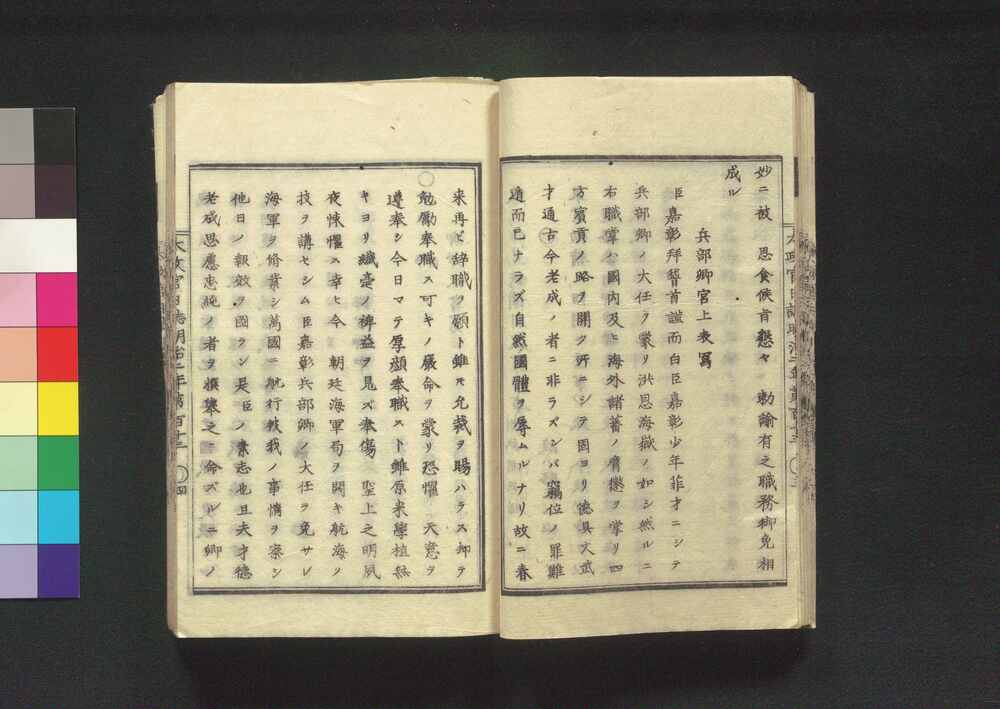 妙ニ被　思食候首懸ヤ　勅諭有之職務御免相
成ル
兵部卿宮上表寫
臣嘉彰拜替首謹而白臣嘉彰少年菲才ニシテ
兵部卿ノ大任ヲ蒙リ洪恩海嶽ノ如シ然ルニ
右職掌ハ國内及ヒ海外諸蕃ノ膺懲ヲ掌リ四
方賓貢ノ略ヲ開ク所ニシテ固ヨリ徳具文武
才通古今老成ノ者ニ非ラズンバ竊位ノ罪難
遁而已ナラズ自然國體ヲ辱ムルナリ故ニ春
来再ビ辞職ヲ願ト雖モ允裁ヲ賜ハラス却テ
勉勵奉職ス可キノ嚴命ヲ蒙リ恐懼　天意ヲ
遵奉シ今日マテ厚顔奉職スト雖原来學植無
キヨリ纖毫ノ裨益ヲ見ズ奉傷　聖上之明夙
夜悚懼ス幸ヒ今　朝廷海軍局ヲ開キ航海ノ
技ヲ講セシム臣嘉彰兵部卿ノ大任ヲ免サレ
海軍ヲ脩業シ萬國ニ航行彼我ノ事情ヲ察シ
他日ノ報效ヲ圖ラン是臣ノ素志也且夫才徳
老成思慮忠純ノ者ヲ撰擧之ニ命ズルニ卿ノ
太政官日誌明治二年第百十三　四